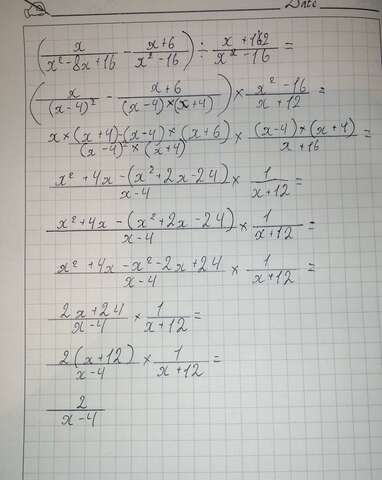 Date
(x/(x²-8x+16) - (x+6)/(x²-16)) ÷ (x+162)/(x²-16) =
(x/(x-4)² - (x+6)/((x-4)×(x+4))) × (x²-16)/(x+12) =
(x×(x+4)-(x-4)×(x+6))/((x-4)²×(x+4)) × ((x-4)×(x+4))/(x+16) =
(x²+4x-(x²+2x-24))/(x-4) × 1/(x+12) =
(x²+4x-(x²+2x-24))/(x-4) × 1/(x+12) =
(x²+4x-x²-2x+24)/(x-4) × 1/(x+12) =
(2x+24)/(x-4) × 1/(x+12) =
(2(x+12))/(x-4) × 1/(x+12) =
2/(x-4)